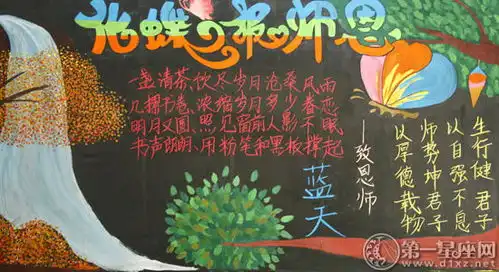 化蝶的报师恩
一盏清茶、饮尽岁月沧桑风雨
几摞书卷、浓缩岁月多少眷恋
明月又圆、照见窗前人影不眠
书声朗朗、用粉笔和黑板撑起
蓝天
——致恩师
生行健 君子
以自强不息
师势坤君子
以厚德载物
第一星座网
www.d1xz.net